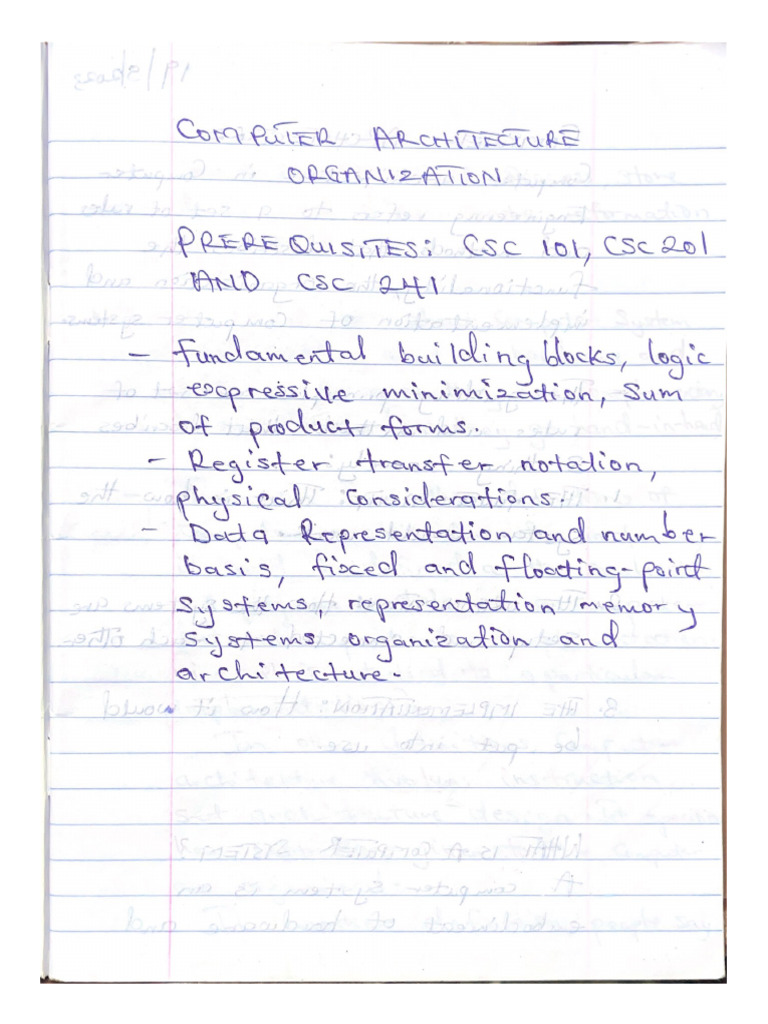 COMPUTER ARCHITECTURE
ORGANIZATION
PREREQUISITES: CSC 101, CSC 201
AND CSC 241
- fundamental building blocks, logic
expressive minimization, Sum
of product forms.
- Register transfer notation,
physical Considerations.
- Data Representation and number
basis, fixed and floating-point
systems, representation memory
systems organization and
architecture.